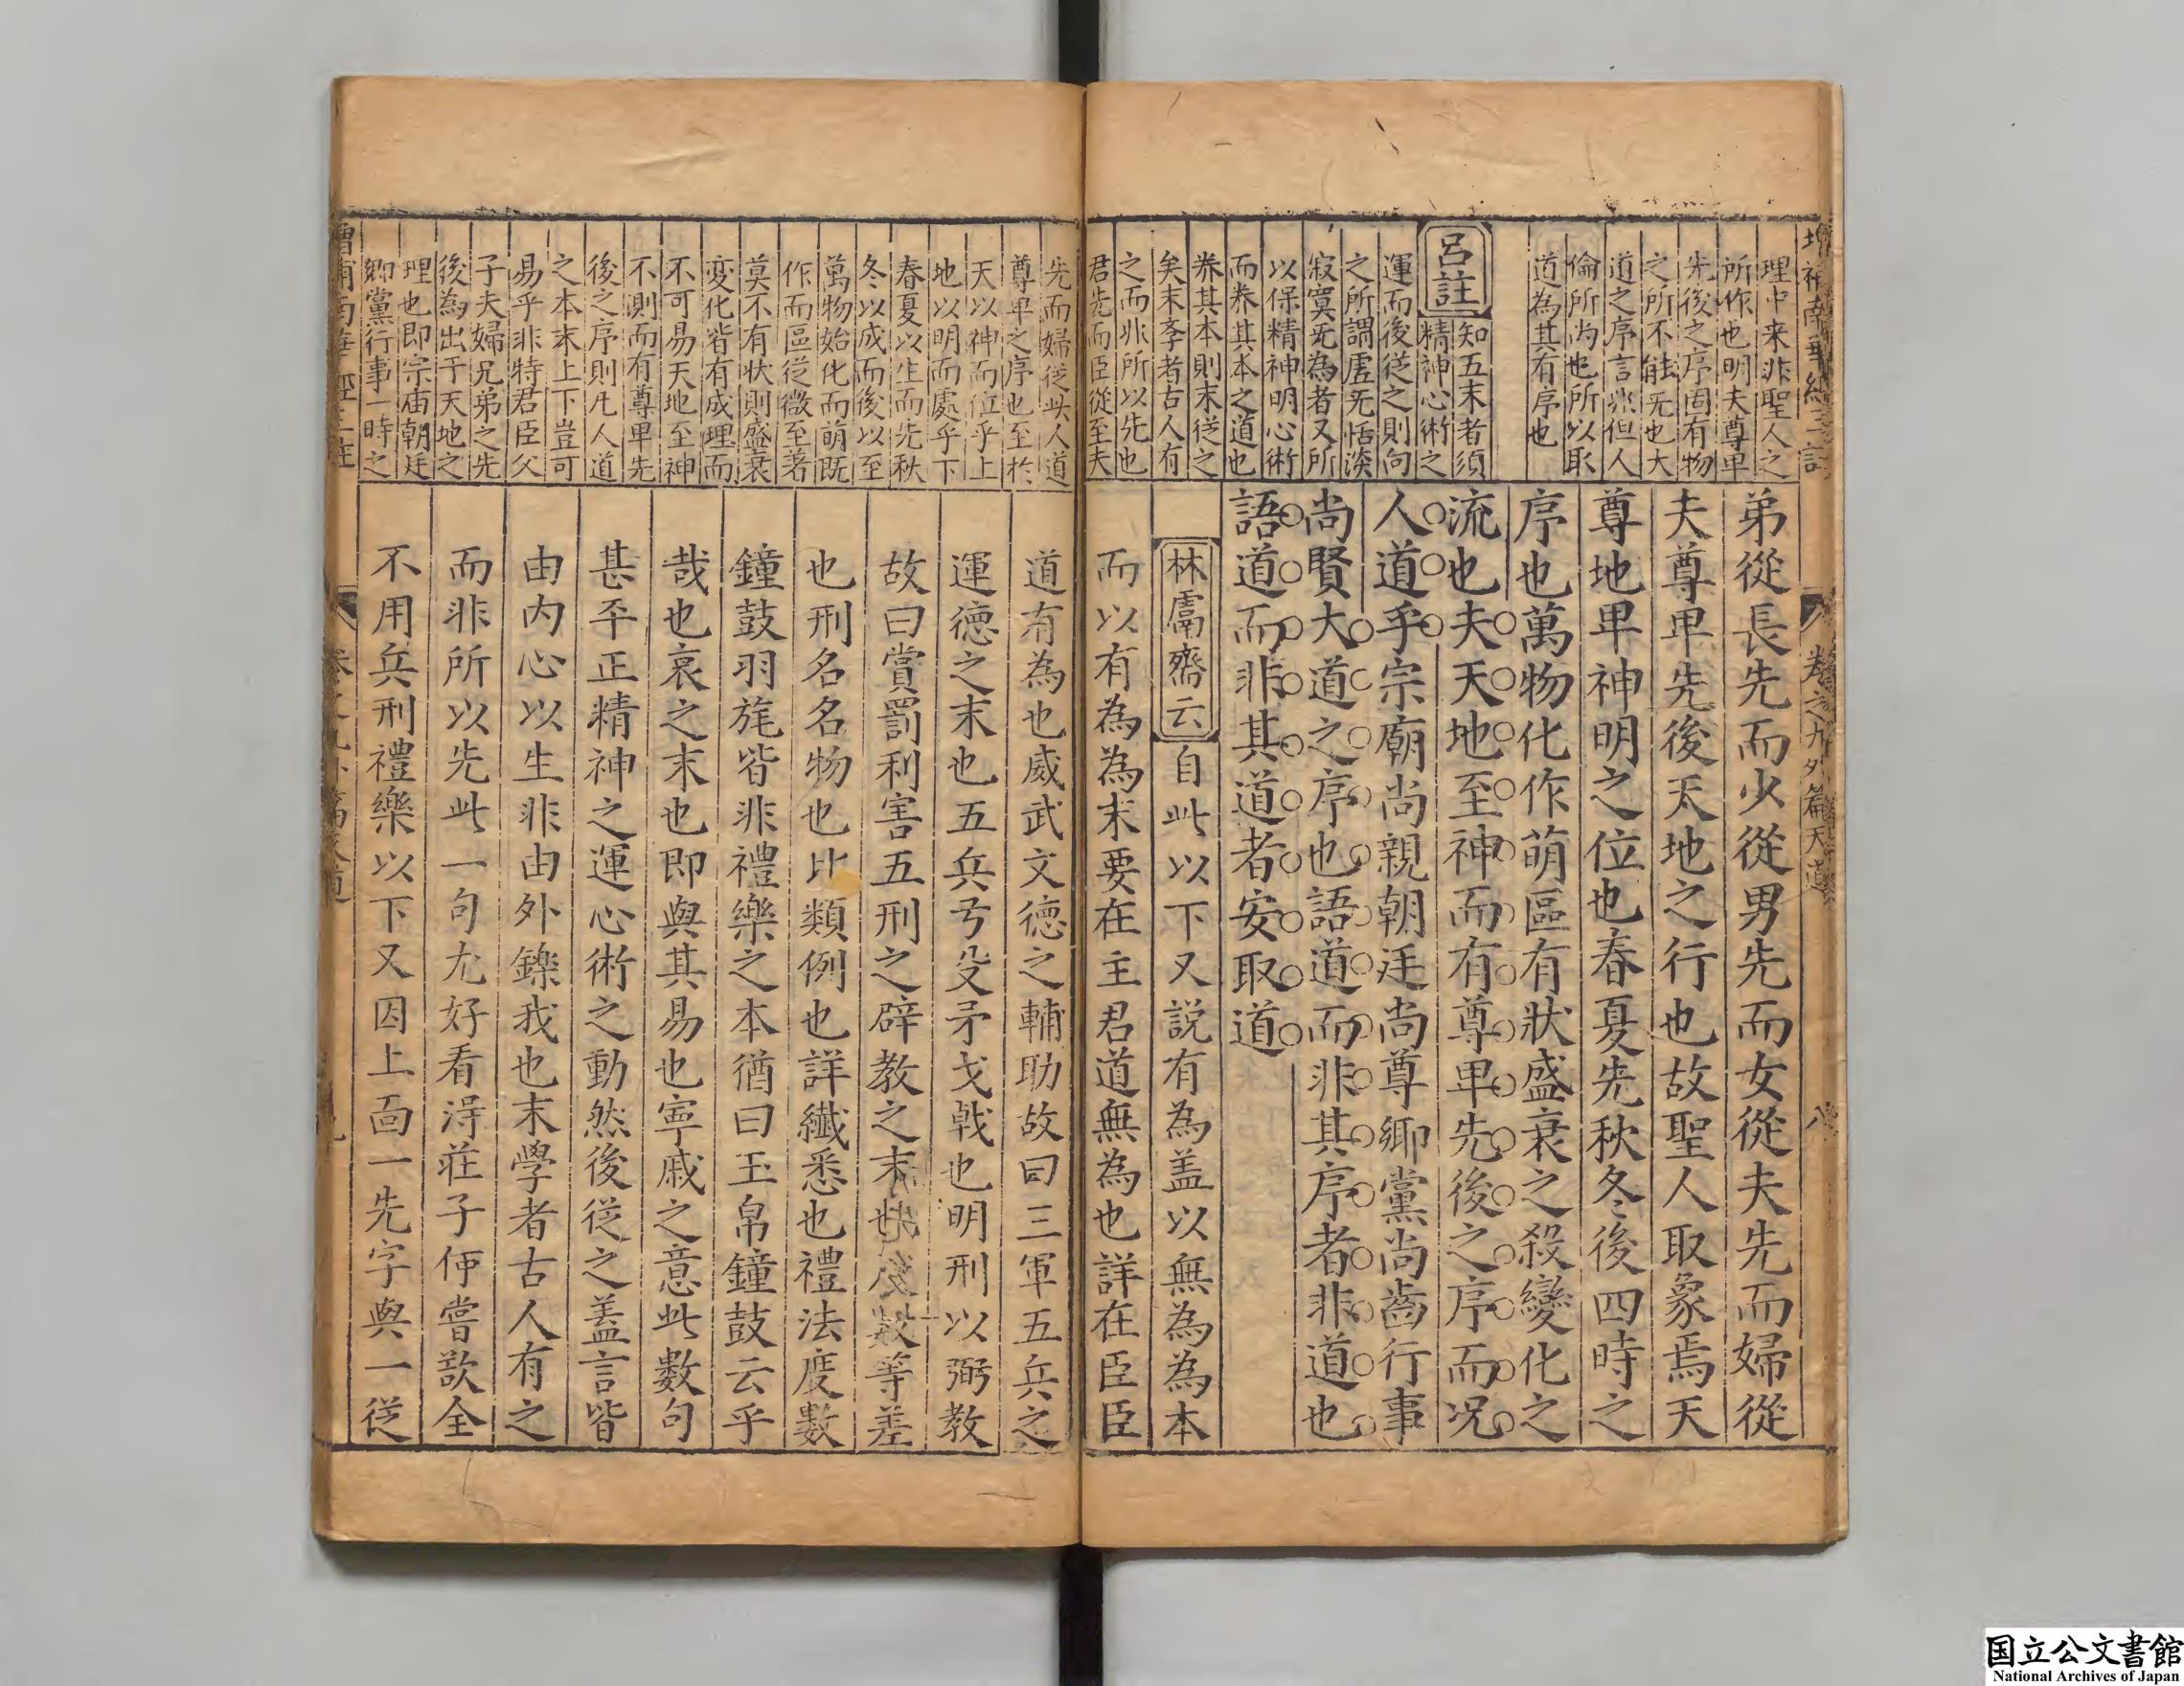 增補南華經三註
理中来非聖人之
所作也明夫尊卑
先後之序固有物
之所不能无也大
道之序言非但人
倫所尚也所以取
道為其有序也
呂註
知五末者須
精神心術之
運而後從之則向
之所謂虛无恬淡
寂寞无為者又所
以保精神明心術
而养其本之道也
养其本則末從之
矣末孝者古人有
之而非所以先也
君先而臣從至夫
卷之九外篇天道
八
弟從長先而少從男先而女從夫先而婦從
夫尊卑先後天地之行也故聖人取象焉天
尊地卑神明之位也春夏先秋冬後四時之
序也萬物化作萌區有狀盛衰之殺變化之
流也夫天地至神而有尊卑先後之序而况
人道乎宗廟尚親朝廷尚尊鄉黨尚齒行事
尚賢大道之序也語道而非其序者非道也
語道而非其道者安取道
林鬳齋云
自此以下又説有為盖以無為為本
而以有為為末要在主君道無為也詳在臣臣
先而婦從此人道
尊卑之序也至於
天以神而位乎上
地以明而處乎下
春夏以生而先秋
冬以成而後以至
萬物始化而萌既
作而區從微至著
莫不有狀則盛衰
変化皆有成理而
不可易天地至神
不測而有尊卑先
後之序則凡人道
之本末上下豈可
易乎非特君臣父
子夫婦兄弟之先
後為出于天地之
理也即宗庙朝廷
鄉黨行事一時之
道有為也威武文德之輔助故曰三軍五兵之
運德之末也五兵弓殳矛戈戟也明刑以弼教
故曰賞罰利害五刑之辟教之末也 等差
也刑名名物也比類例也詳纖悉也禮法度數
鐘鼓羽旄皆非禮樂之本猶曰玉帛鐘鼓云乎
哉也哀之末也即與其易也寧戚之意此數句
甚平正精神之運心術之動然後從之盖言皆
由内心以生非由外鑠我也末學者古人有之
而非所以先此一句尤好看淂莊子何嘗欲全
不用兵刑禮樂以下又因上面一先字與一従
国立公文書館
National Archives of Japan